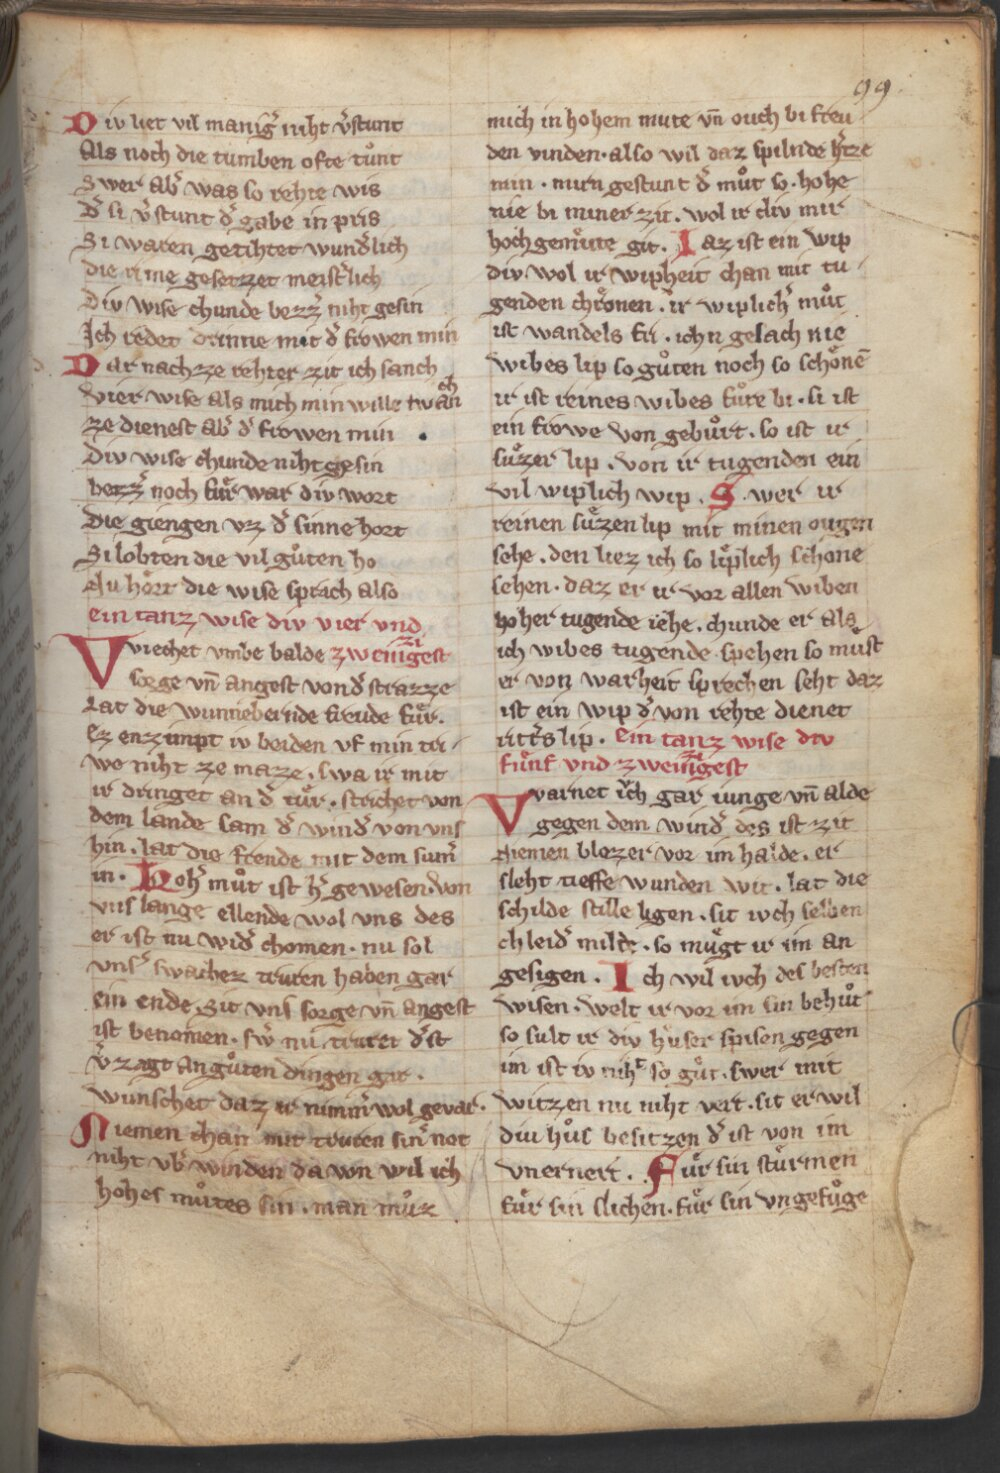 99
Div liet vil manig͛ niht v͛stunt
Als noch die tumben ofte tuͦnt
Swer ab͛ was so rehte wis
D͛ si v͛stunt d͛ gabe in pris
Si waren getihtet wund͛lich
die rime gesetzet meist͛lich
Div wise chunde bezz͛ niht gesin
Ich redet drinne mit d͛ frowen min
Dar nach ze rehter zit ich sanch
Vier wise als mich min wille twanch
ze dienest ab͛ d͛ frowen min
Div wise chunde niht gesin
bezz͛ noch fuͤr war div wort
Die giengen vz d͛ sinne hort
Si lobten die vil guͦten ho
Nu hoͤrt die wise sprach also
ein tanz wise div vier vnd
zweinzigest
Vviechet vmbe balde
sorge vn̄ angest von d͛ strazze
Lat die wunnebernde freude fuͤr.
Ez enzimpt iv beiden vf min tri-
we niht ze maze. swa ir mit
ir dringet an d͛ tuͤr. strichet von
dem lande sam d͛ wind͛ von vns
hin. lat die frende mit dem sum͛
in. Hoh͛ muͦt ist h͛ gewesen. von
vns lange ellende wol vns des
er ist nu wid͛ chomen. nu sol
vns͛ swacher truren haben gar
ein ende. Sit vns sorge vn̄ angest
ist benomen. sw͛ nu truret d͛st
v͛zagt an guͦten dingen gar.
wunschet daz ir nimm͛ wol gevar.
Niemen chan mit truren sin͛ not
niht vb͛winden da von wil ich
hohes muͦtes sin. man muͦz
mich in hohem mute vn̄ ouch bi freu
den vinden. also wil daz spilnde h͛ze
min. mirn gestunt d͛ muͦt so. hohe
nie bi miner zit. wol ir div mir
hochgemuͤte git. Daz ist ein wip
div wol ir wipheit chan mit tu-
genden chroͤnen. ir wiplich͛ muͦt
ist wandels fri. ichn gesach nie
wibes lip so guͦten noch so schoͤnē
ir ist reines wibes fuͦre bi. si ist
ein frowe von gebuͤrt. so ist ir
suͤzer lip. von ir tugenden ein
vil wiplich wip. Swer ir
reinen suͤzen lip mit minen ougen
sehe. den liez ich so liplich schone
sehen. daz er ir vor allen wiben
hoher tugende iehe. chunde er als
ich wibes tugende spehen so muͤst
er von warheit sprechen seht daz
ist ein wip d͛ von rehte dienet
ritt͛s lip. Ein tanz wise div
fuͤnf vnd zweinzigest
Vvarnet ivch gar iunge vn̄ alde
gegen dem wind͛ des ist zit
niemen blozer vor im halde. er
sleht tieffe wunden wit. lat die
schilde stille ligen. sit ivch selben
chleid͛ milde. so muͤgt ir im an
gesigen. Ich wil ivch des besten
wisen. welt ir vor im sin behuͦt
so sult ir div huser spisen gegen
im ist iv niht so guͦt. swer mit
witzen nu niht vert. sit er wil
diu huͤs besitzen d͛ ist von im
vnernert. Fuͤr sin stuͤrmen
fuͤr sin slichen. fuͤr sin vngefuͤge